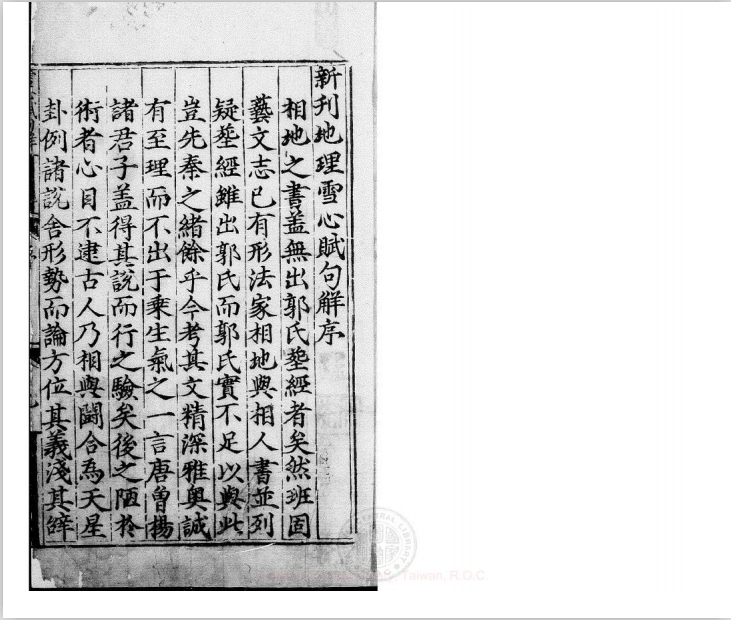 新刊地理雪心賦句解序
相地之書蓋無出郭氏塟經者矣然班固
藝文志已有形法家相地與相人書並列
疑塟經雖出郭氏而郭氏實不足以與此
豈先秦之緒餘乎今考其文精深雅奥誠
有至理而不出于乗生氣之一言唐曾楊
諸君子盖得其説而行之驗矣後之陋於
術者心目不逮古人乃相與闘合為天星
卦例諸説舍形勢而論方位其義淺其辤
Taiwan, R.O.C.